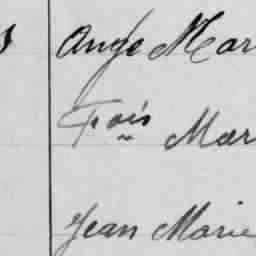 Ange Mar
Fois Mar
Jean Marie